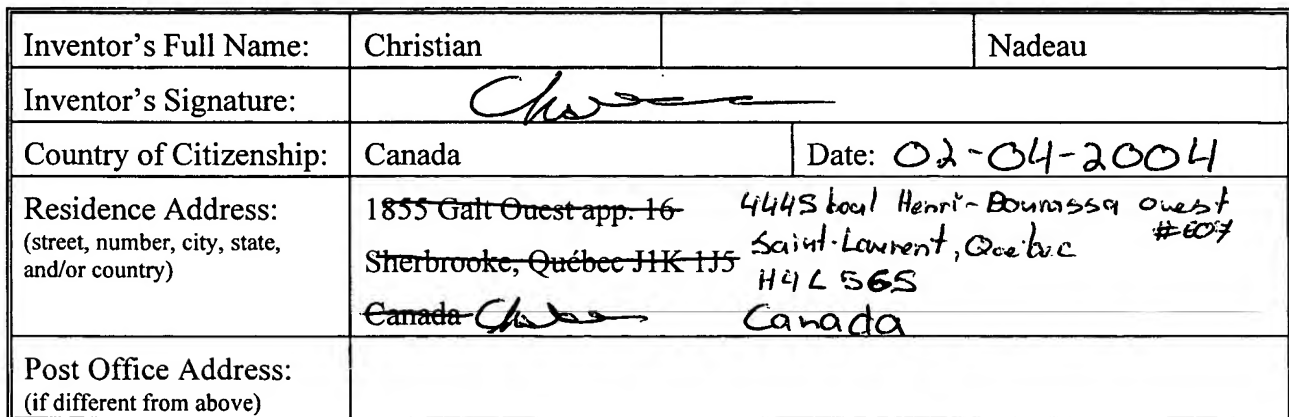 Inventor's Full Name: Christian Nadeau
Inventor's Signature:
Country of Citizenship: Canada Date: 02-04-2004
Residence Address:
(street, number, city, state,
and/or country)
1855 Galt Ouest app. 16
Sherbrooke, Québec J1K 1J5
Canada
4445 boul Henri-Bourassa ouest
#607
Saint-Laurent, Québec
H4L 5G5
Canada
Post Office Address:
(if different from above)